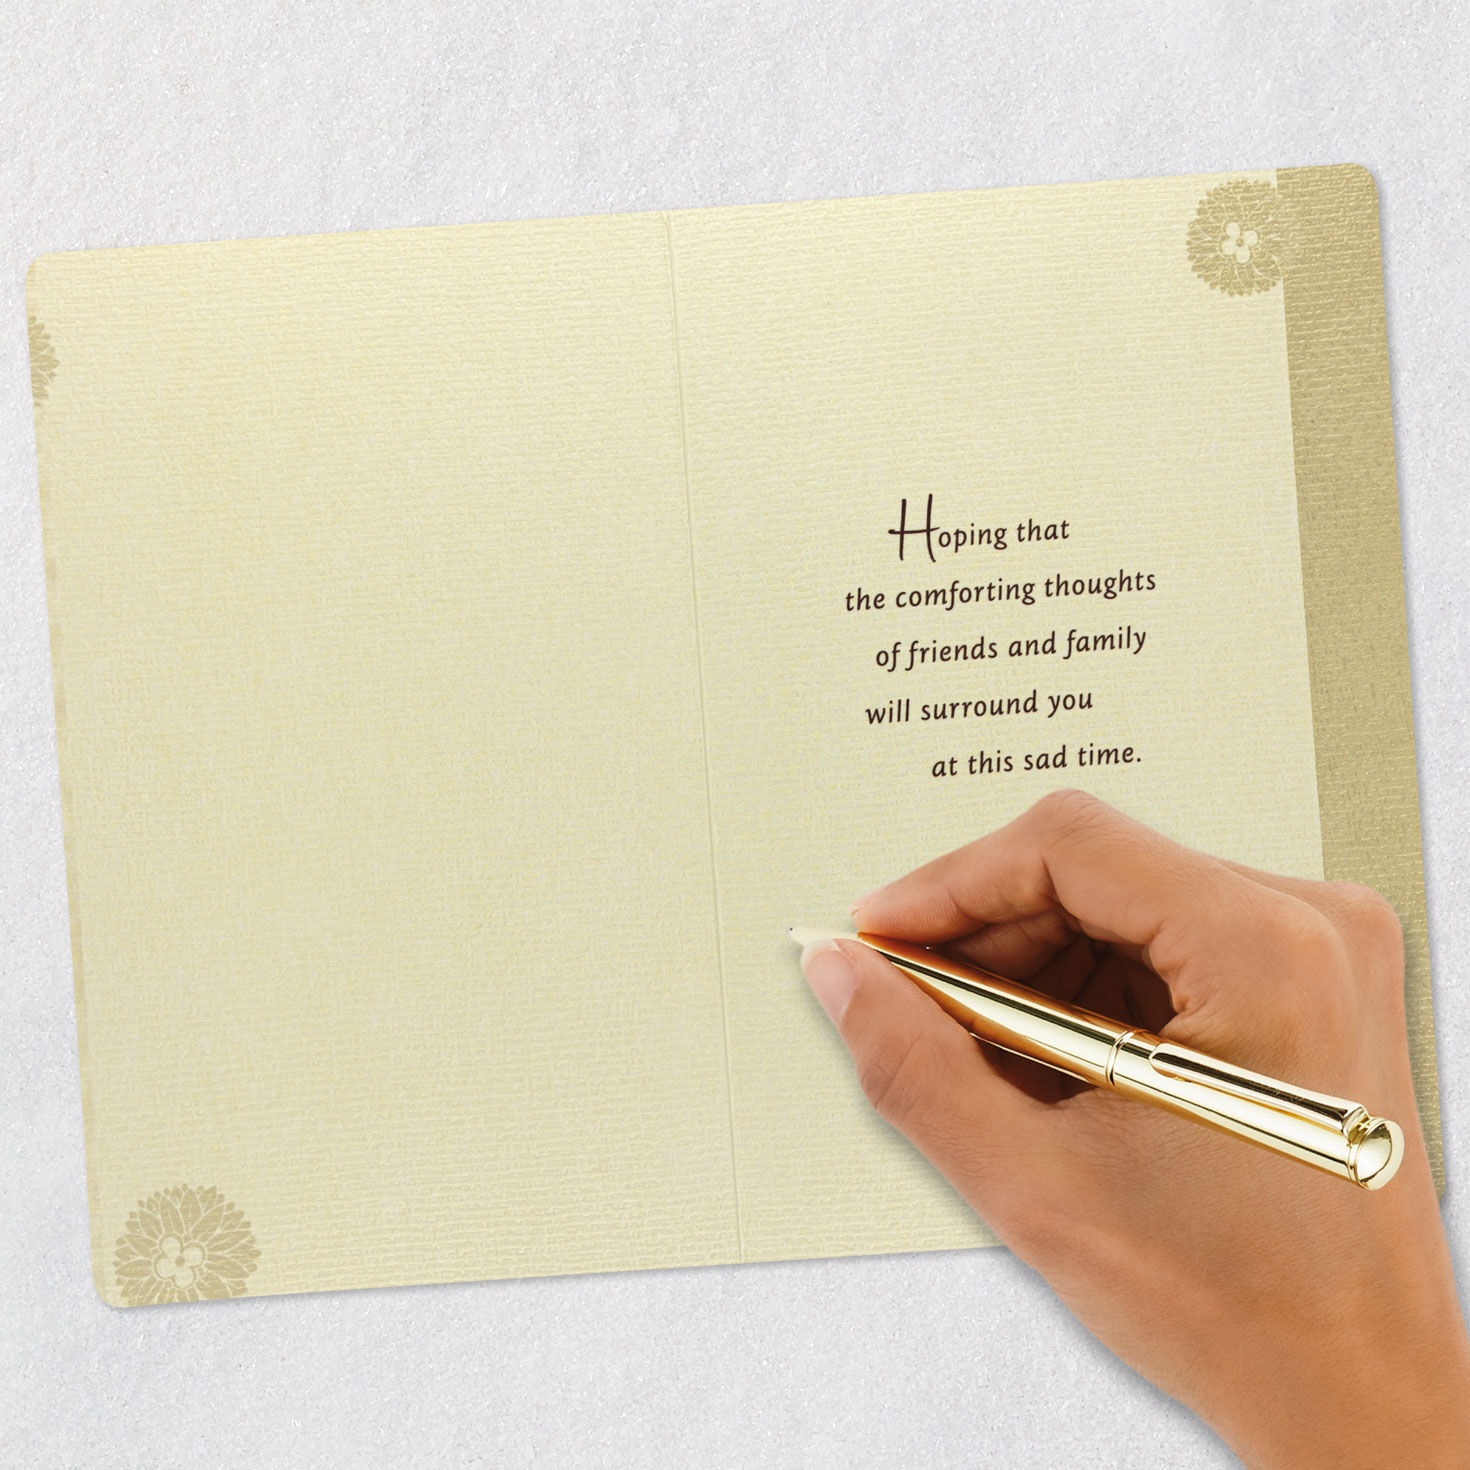 Hoping that
the comforting thoughts
of friends and family
will surround you
at this sad time.